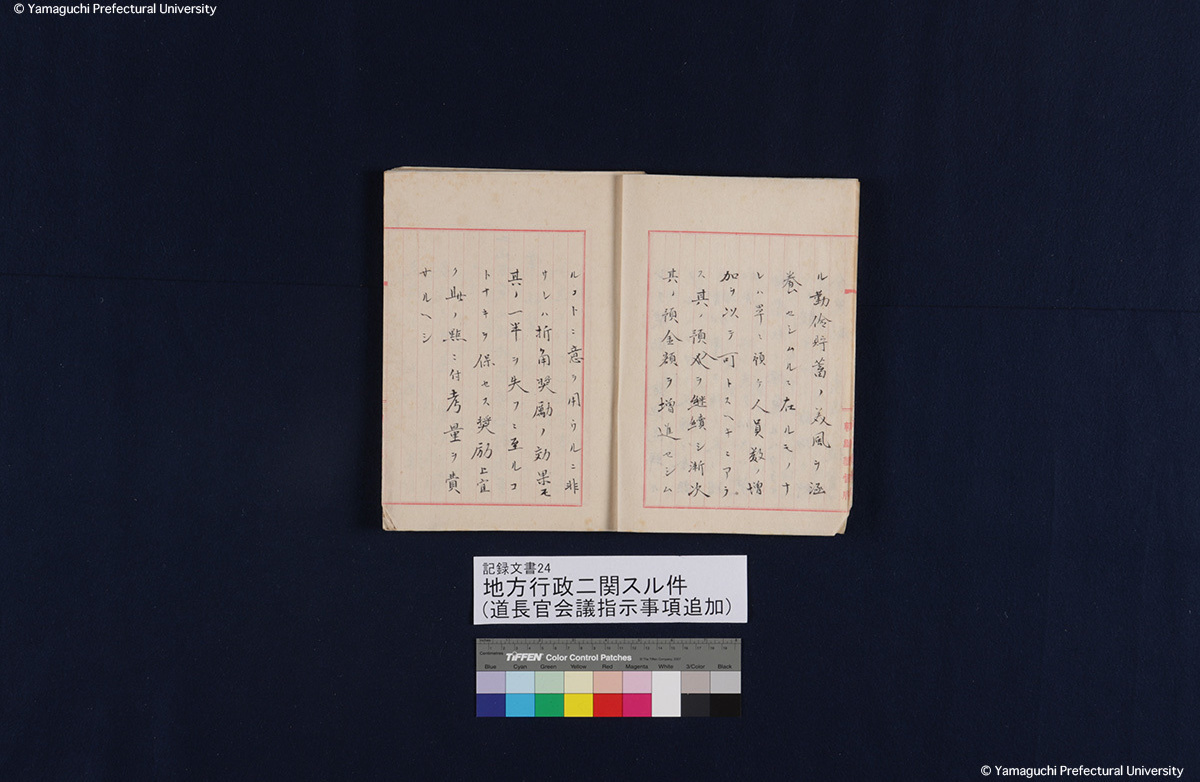 © Yamaguchi Prefectural University
ル勤儉貯蓄ノ美風ヲ涵
養セシムルニ在ルモノナ
レハ単ニ預ケ人員数ノ増
加ヲ以テ可トスヘキニアラ
ス其ノ預入ヲ継続シ漸次
其ノ預金額ヲ増進セシム
ルコトニ意ヲ用ウルニ非
サレハ折角奨励ノ効果モ
其ノ一半ヲ失フニ至ルコ
トナキヲ保セス奨励上宜
ク此ノ点ニ付考量ヲ費
サルヘシ
記録文書24
地方行政ニ関スル件
(道長官会議指示事項追加)
TIFFEN Color Control Patches
Blue Cyan Green Yellow Red Magenta White 3/Color Black
© Yamaguchi Prefectural University